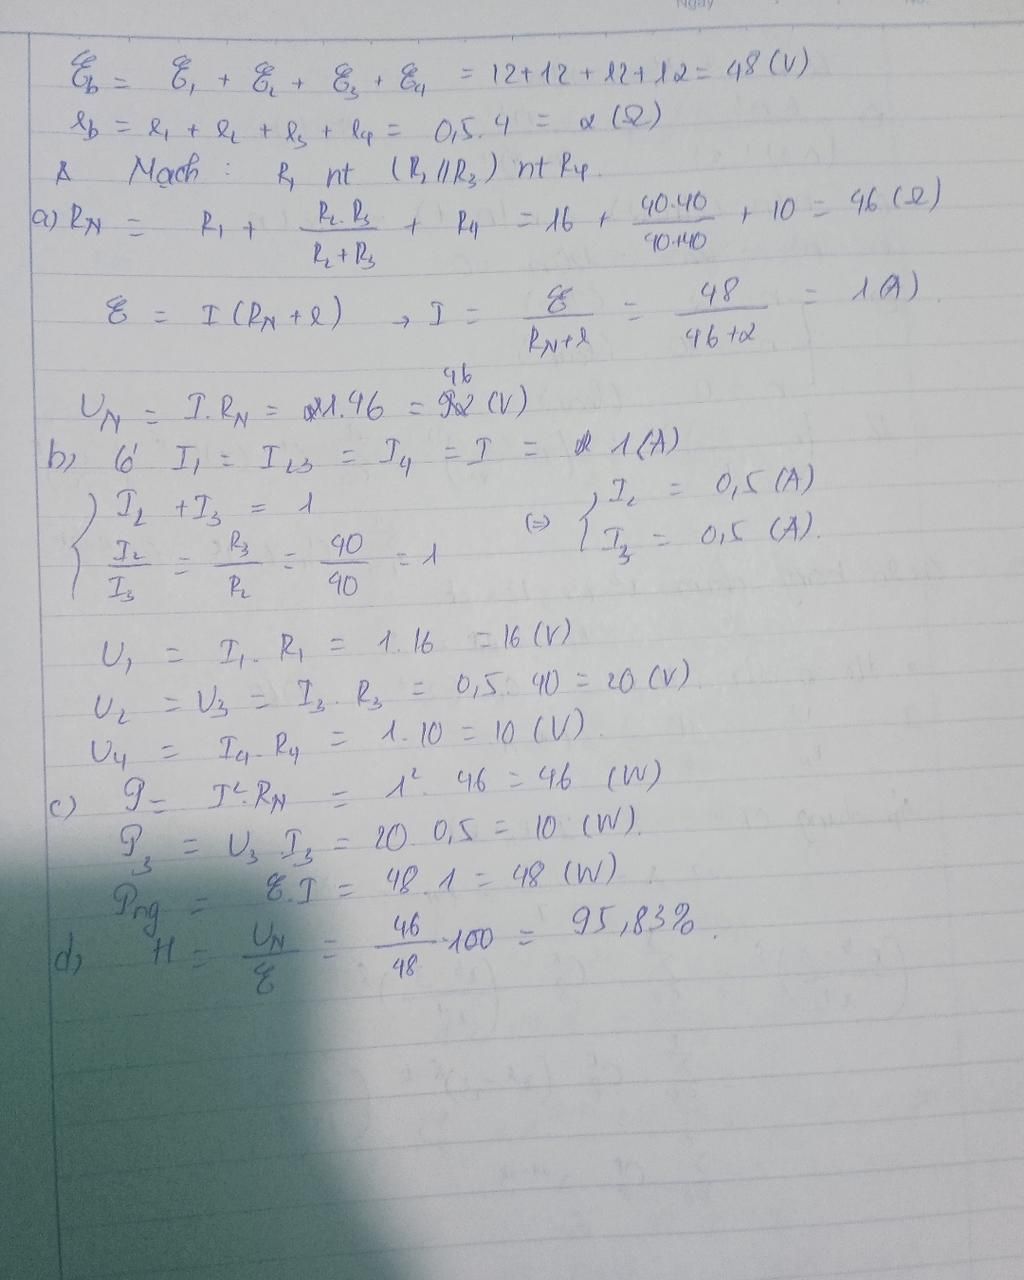 Ngày No.
ℰb = ℰ1 + ℰ2 + ℰ3 + ℰ4 = 12+12+12+12 = 48 (V)
rb = r1 + r2 + r3 + r4 = 0,5.4 = 2 (Ω)
Mạch : R1 nt (R2//R3) nt R4.
a) RN = R1 + R2.R3/R2+R3 + R4 = 16 + 40.40/40+40 + 10 = 46 (Ω)
ℰ = I(RN+r) → I = ℰ/RN+r = 48/46+2 = 1(A)
UN = I.RN = 1.46 = 46 (V)
b) Có I1 = I23 = I4 = I = 1(A)
{ I2 + I3 = 1 (=) { I2 = 0,5 (A)
I2/I3 = R3/R2 = 40/40 = 1 I3 = 0,5 (A).
U1 = I1.R1 = 1.16 = 16 (V)
U2 = U3 = I3.R3 = 0,5.40 = 20 (V)
U4 = I4.R4 = 1.10 = 10 (V).
c) P = I².RN = 1².46 = 46 (W)
P3 = U3.I3 = 20.0,5 = 10 (W).
Png = ℰ.I = 48.1 = 48 (W)
d) H = UN/ℰ = 46/48.100 = 95,83%.